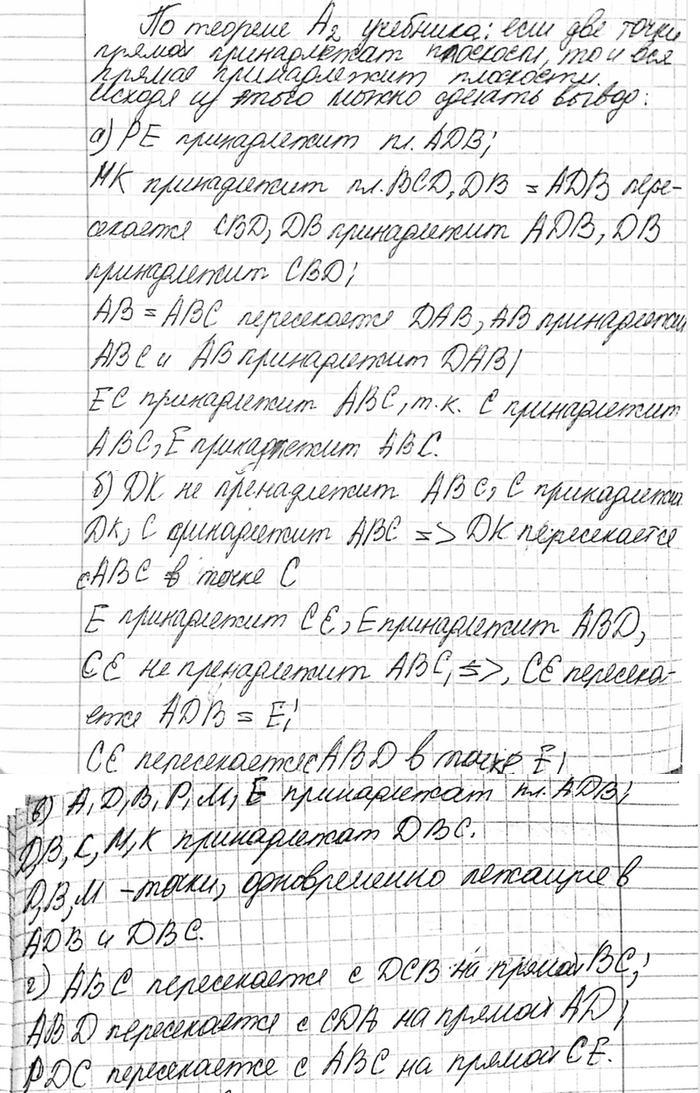 По теореме А2 учебника: если две точки
прямой принадлежат плоскости, то и вся
прямая принадлежит плоскости.
Исходя из этого можно сделать вывод:
а) PE принадлежит пл. ADB;
МК принадлежит пл. BCD, DB = ADB пере-
секается CBD, DB принадлежит ADB, DB
принадлежит CBD;
AB = ABC пересекается DAB, AB принадлежит
ABC и AB принадлежит DAB;
EC принадлежит ABC, т.к. C принадлежит
ABC, E принадлежит ABC.
б) DK не пренадлежит ABC, C принадлежит
DK, C принадлежит ABC => DK пересекается
с ABC в точке C
E принадлежит CE, E принадлежит ABD,
CE не пренадлежит ABC, =>, CE пересека-
ется ADB = E;
CE пересекается с ABD в точке E;
в) A, D, B, P, M, E принадлежат пл. ADB;
D, B, C, M, K принадлежат DBC.
D, B, M - точки, одновременно лежащие в
ADB и DBC.
г) ABC пересекается с DCB на прямой BC;
ABD пересекается с CDA на прямой AD;
PDC пересекается с ABC на прямой CE.